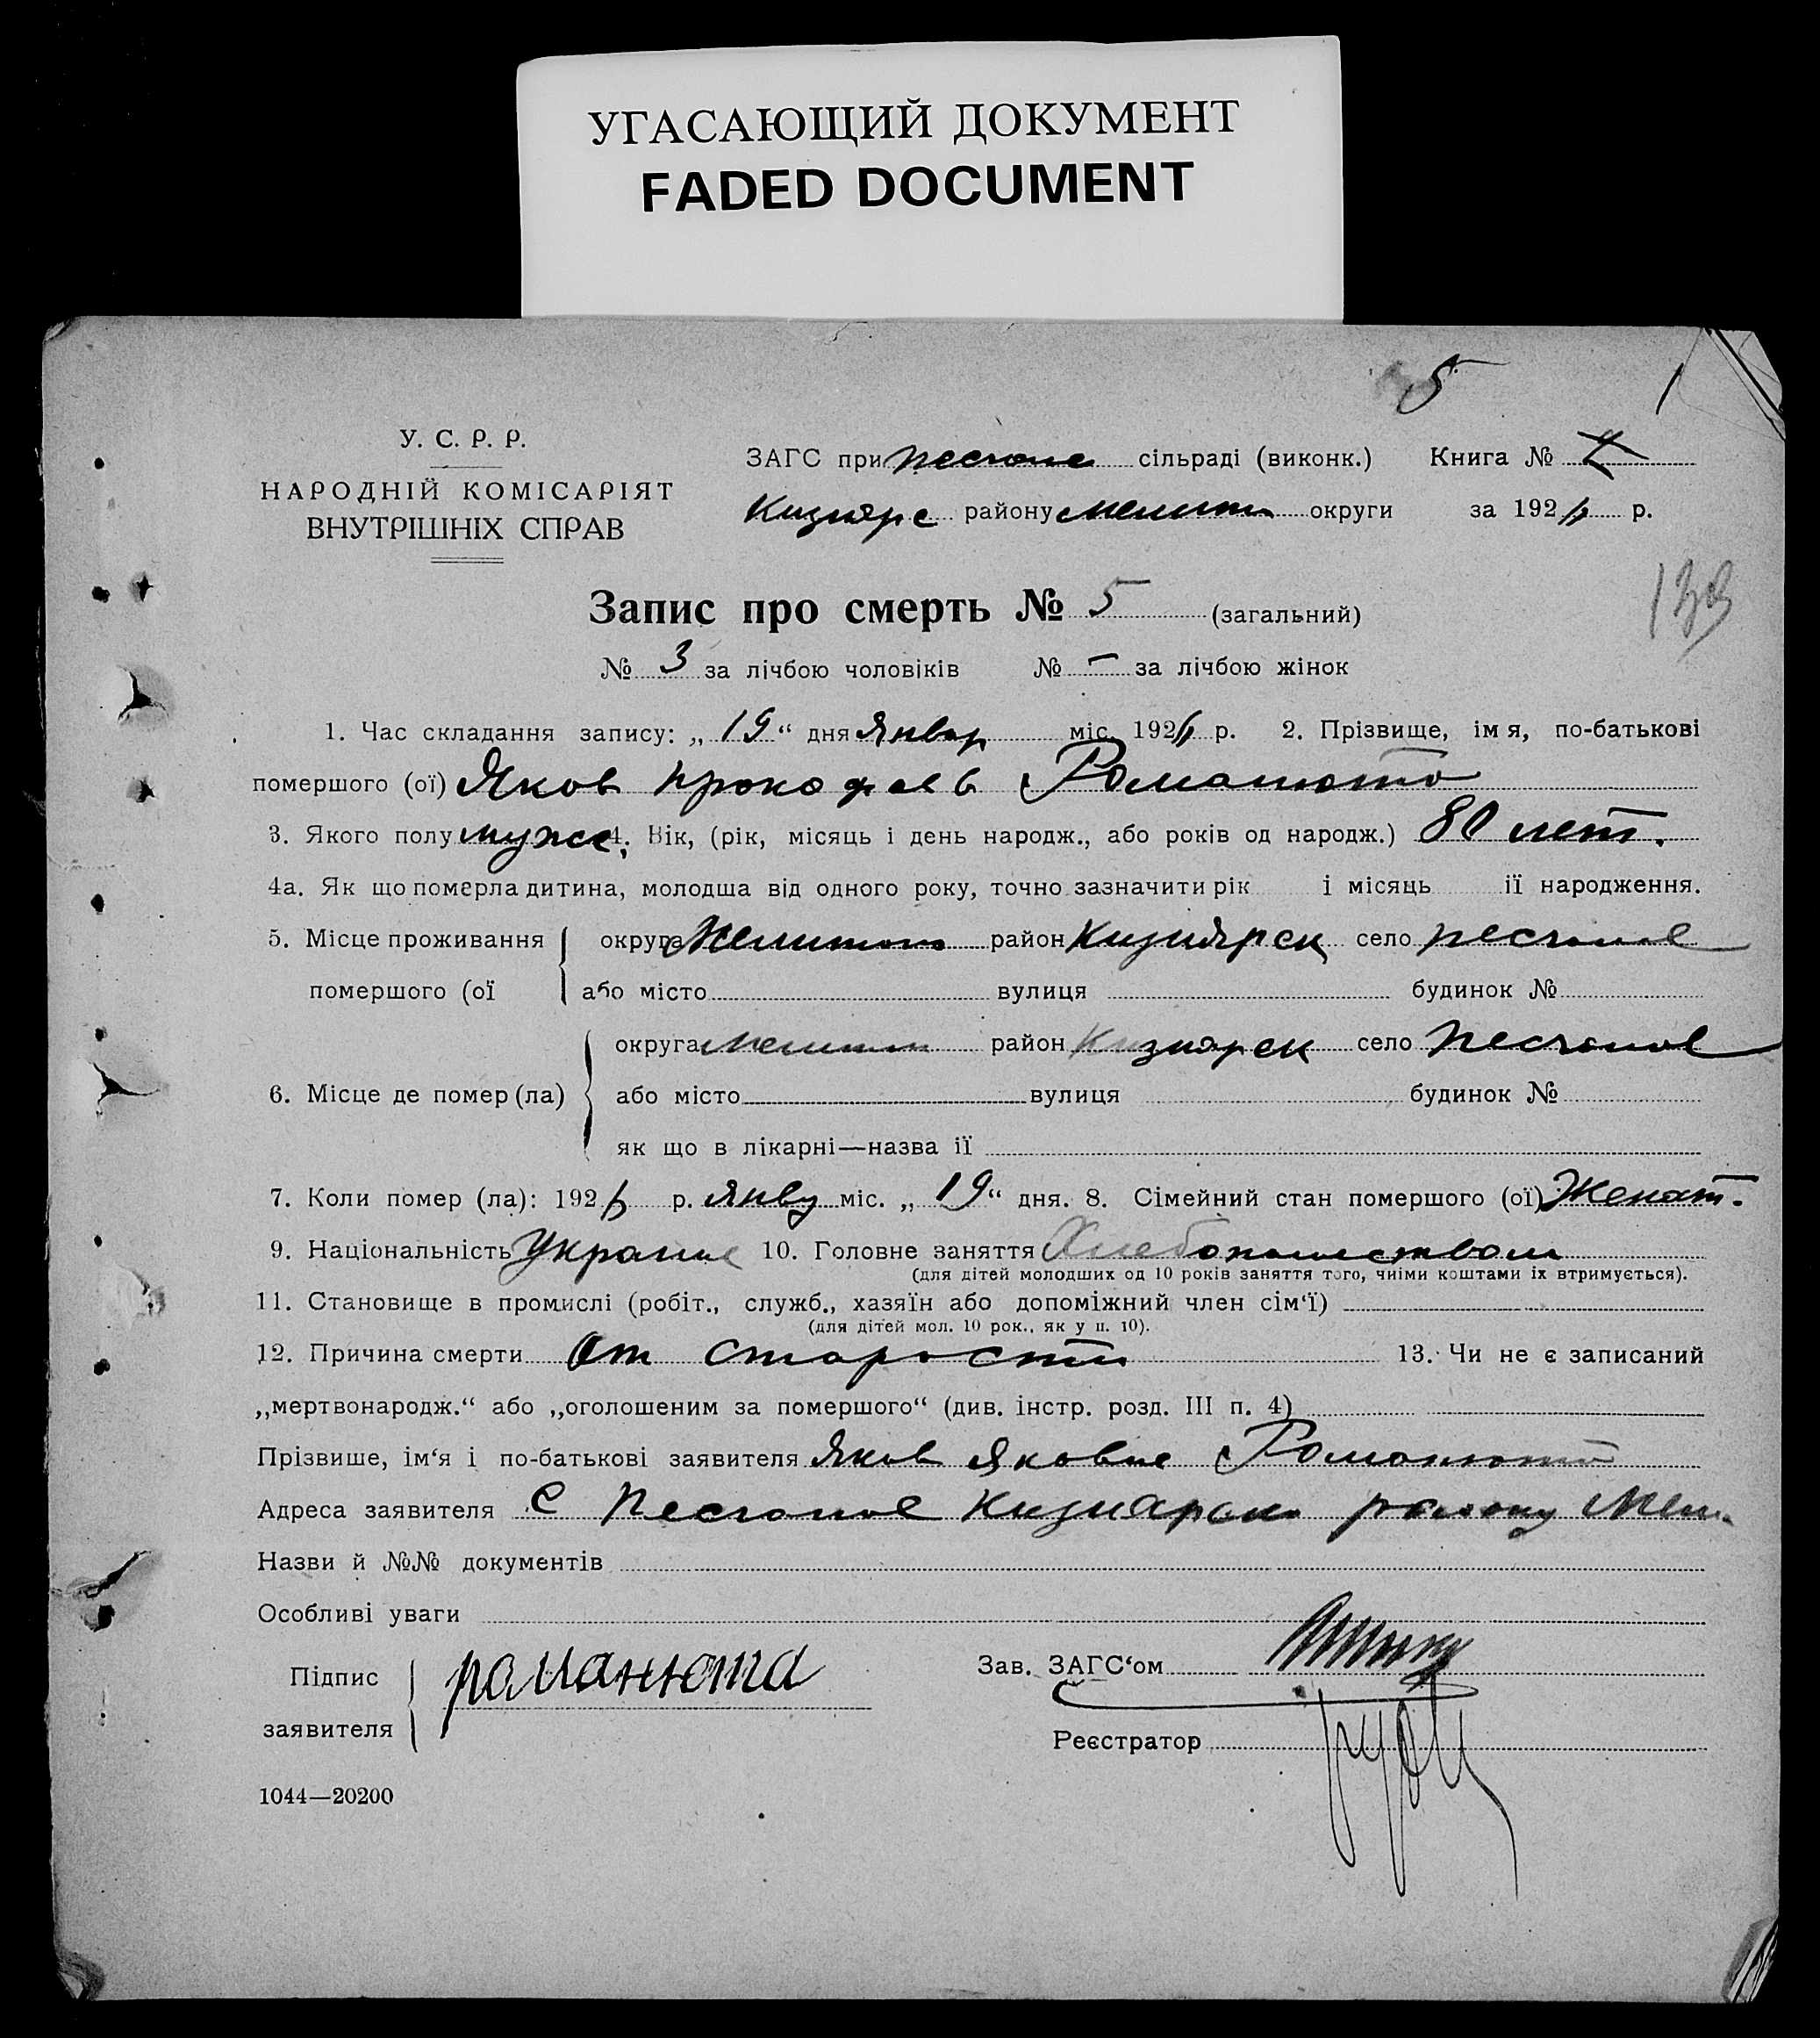 УГАСАЮЩИЙ ДОКУМЕНТ
FADED DOCUMENT
5 1
У. С. Р. Р.
НАРОДНІЙ КОМІСАРІЯТ
ВНУТРІШНІХ СПРАВ
ЗАГС при песчане сільраді (виконк.) Книга №
Кизиярс району мелит округи за 192 р.
139
Запис про смерть № 5 (загальний)
№ 3 за лічбою чоловіків № — за лічбою жінок
1. Час складання запису: „ 19 “ дня Январ міс. 192 р. 2. Прізвище, імя, по-батькові
помершого (ої) Яков прокофаев Романюто
3. Якого полу мужс 4. Вік, (рік, місяць і день народж., або років од народж.) 80 лет.
4а. Як що померла дитина, молодша від одного року, точно зазначити рік і місяць її народження.
5. Місце проживання округа район Кизиярск село песчаное
помершого (ої або місто вулиця будинок №
округа мелит район Кизиярск село Песчаное
6. Місце де помер (ла) або місто вулиця будинок №
як що в лікарні—назва її
7. Коли помер (ла): 192 р. янву міс. „ 19 “ дня. 8. Сімейний стан помершого (ої) Женат.
9. Національність 10. Головне заняття Хлебопашеством
(для дітей молодших од 10 років заняття того, чиїми коштами їх втримується).
11. Становище в промислі (робіт., служб., хазяїн або допоміжний член сім‘ї)
(для дітей мол. 10 рок., як у п. 10).
12. Причина смерти От старости 13. Чи не є записаний
„мертвонародж.“ або „оголошеним за померлого“ (див. інстр. розд. III п. 4)
Прізвише, ім‘я і по-батькові заявителя Яков Яковле Романюто
Адреса заявителя С Песчаное Кизиярско району Мели
Назви й №№ документів
Особливі уваги
Підпис
заявителя романюта
Зав. ЗАГС‘ом
Реєстратор
1044—20200